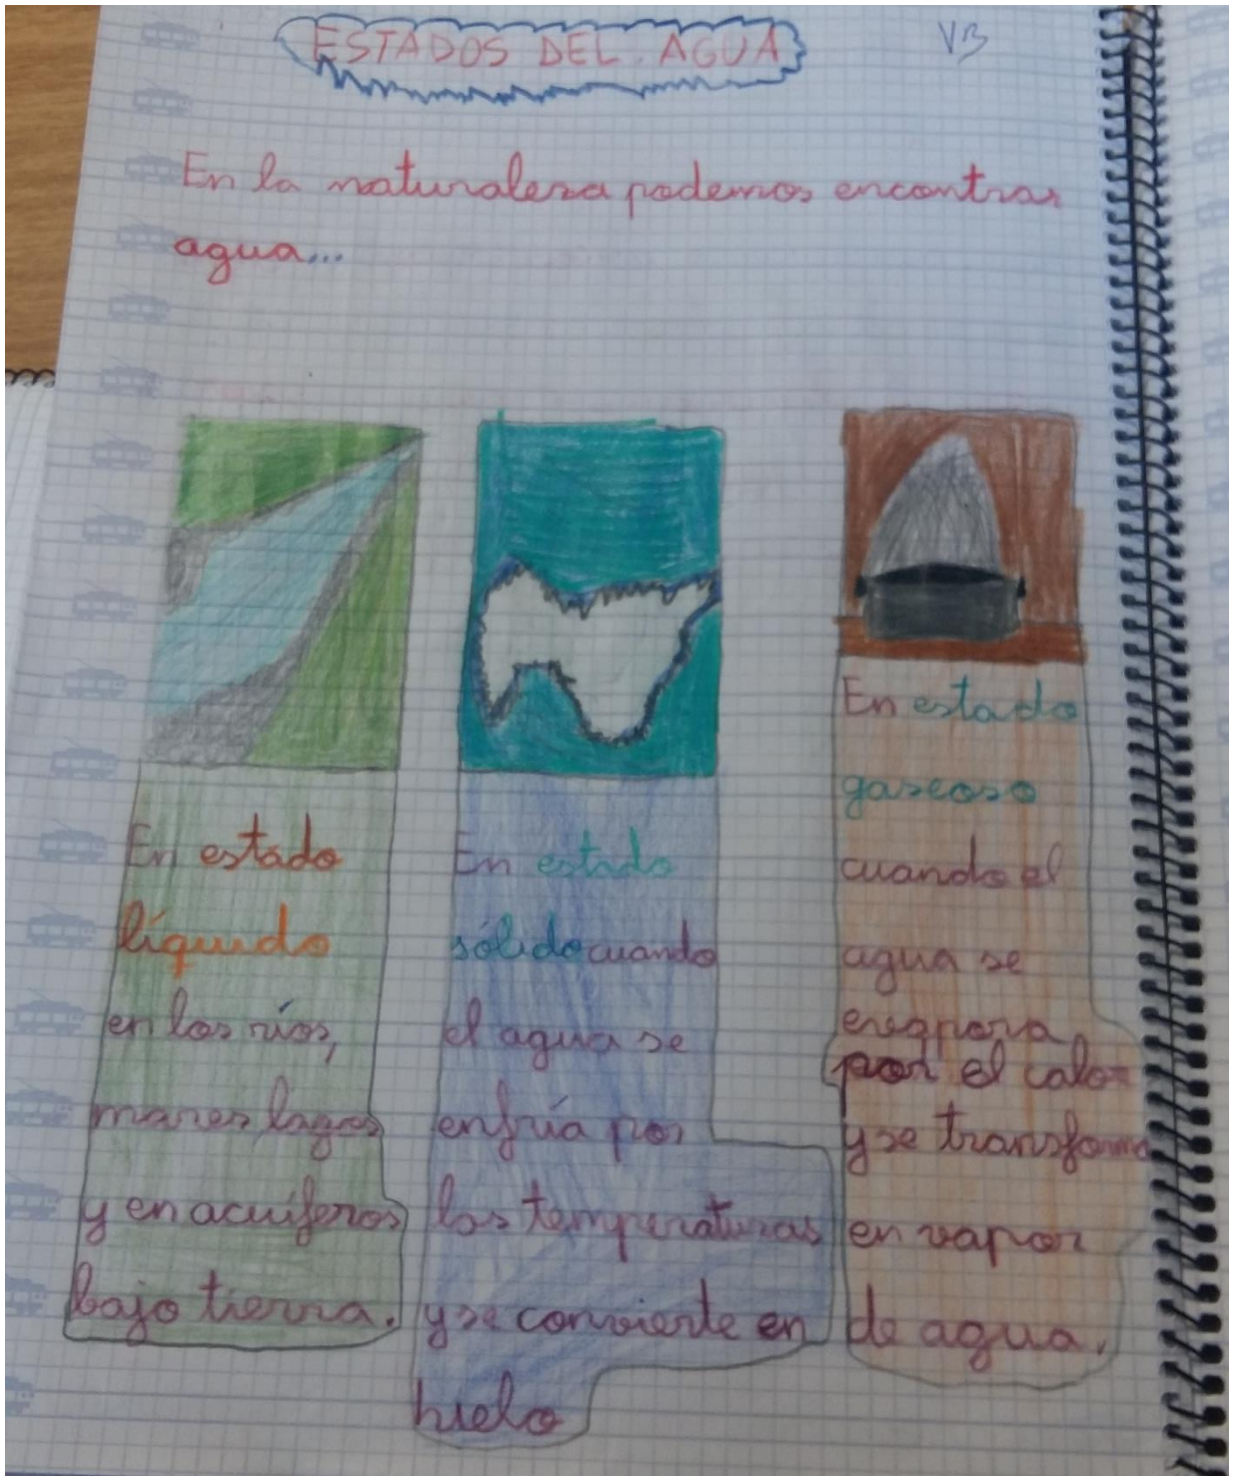 ESTADOS DEL AGUA
VB
En la naturaleza podemos encontrar
agua...
En estado
líquido
en los ríos,
mares lagos
y en acuíferos
bajo tierra.
En estado
sólido cuando
el agua se
enfría por
las temperaturas
y se convierte en
hielo
En estado
gaseoso
cuando el
agua se
evapora
por el calor
y se transforma
en vapor
de agua.